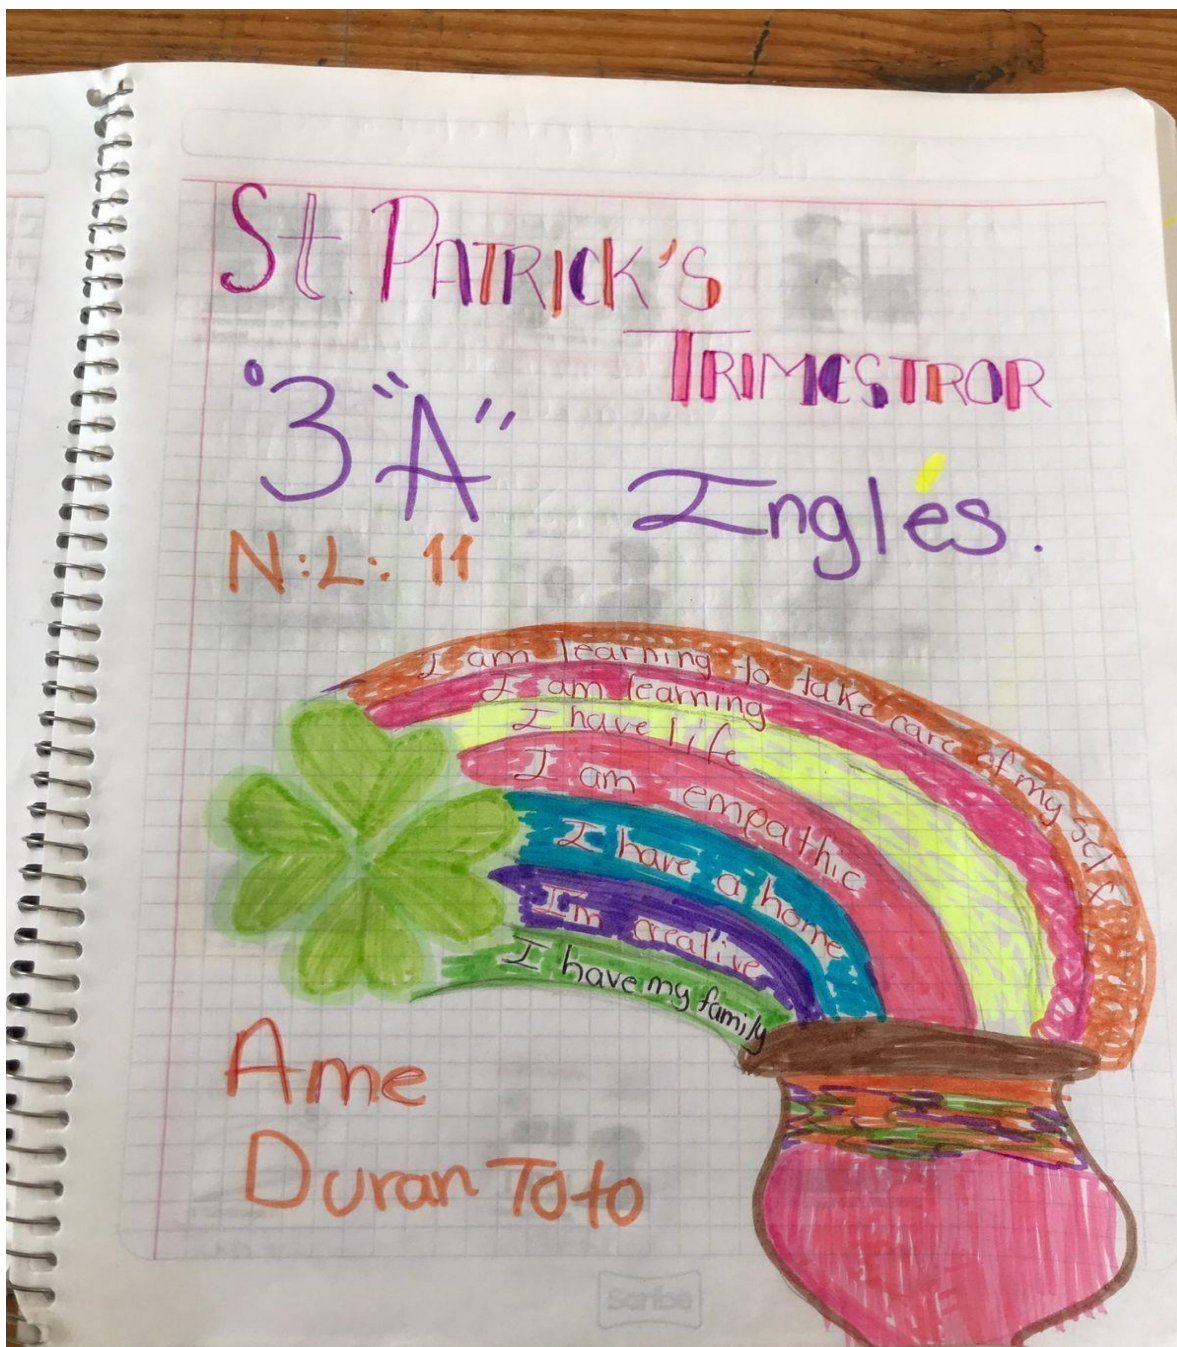 St PATRICK'S
TRIMESTROR
°3 "A"
Inglés.
N:L: 11
I am learning to take care of my self
I am learning
I have life
I am empathic
I have a home
I'm creative
I have my family
Ame
Duran Toto
Scribe